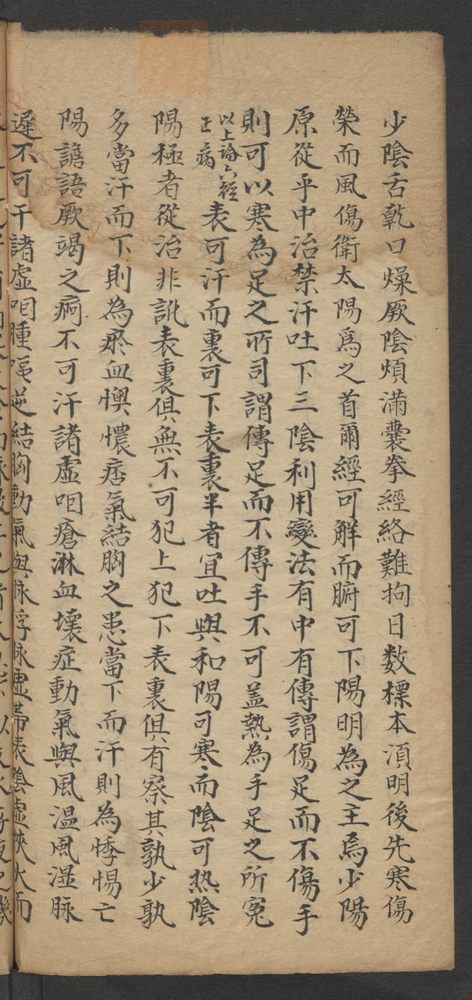 少陰舌乾口燥厥陰煩滿囊拳經絡難拘日数標本湏明後先寒傷
榮而風傷衛太陽爲之首爾經可解而腑可下陽明為之主焉少陽
原從乎中治禁汗吐下三陰利用變法有中有傳謂傷足而不傷手
則可以寒為足之所司謂傳足而不傳手不可盖熱為手足之所冤
以上論六經正病表可汗而裏可下表裏半者宜吐與和陽可寒而陰可热陰
陽極者從治非訛表裏俱無不可犯上犯下表裏俱有察其孰少孰
多當汗而下則為瘀血懊憹痞氣結胸之患當下而汗則為悸惕亡
陽譫語厥竭之痾不可汗諸虛咽瘡淋血壞症動氣與風温風湿脉
遲不可干諸虛咽腫嘔逆結胸動氣與脉浮脉虛帶表陰虛挾火而